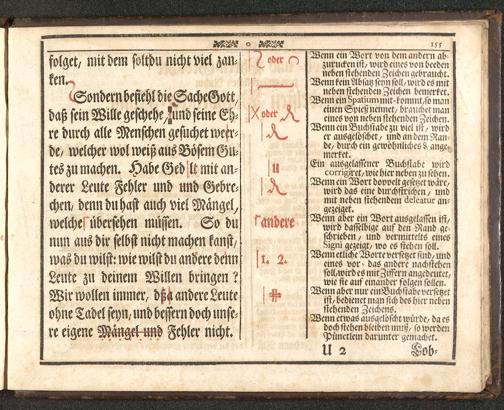 155
folget, mit dem soltdu nicht viel zan-
ken.
Sondern befiehl die SacheGott,
daß sein Wille geschehe, und seine Eh-
re durch alle Menschen gesuchet wer-
de, welcher wol weiß aus Bösem Gu-
tes zu machen. Habe Ged lt mit an-
derer Leute Fehler und und Gebre-
chen, denn du hast auch viel Mängel,
welche übersehen müssen. So du
nun aus dir selbst nicht machen kanst,
was du wilst: wie wilst du andere denn
Leute zu deinem Willen bringen?
Wir wollen immer, dßa andere Leute
ohne Tadel seyn, und bessern doch unse-
re eigene Mängel und Fehler nicht.
oder
oder
u
andere
1. 2.
Wenn ein Wort von dem andern ab-
zurucken ist, wird eines von beeden
neben stehenden Zeichen gebraucht.
Wenn kein Absatz seyn soll, wird es mit
neben stehenden Zeichen bemerket.
Wenn ein Spatium mit-kommt, so man
einen Spieß nennet, brauchet man
eines von neben stehenden Zeichen.
Wenn ein Buchstabe zu viel ist, wird
er ausgelöschet, und an dem Ran-
de, durch ein gewöhnliches & ange-
merket.
Ein ausgelassener Buchstabe wird
corrigiret, wie hier neben zu sehen.
Wenn ein Wort doppelt gesetzet wäre,
wird das eine durchstrichen, und
mit neben stehendem deleatur an-
gezeiget.
Wenn aber ein Wort ausgelassen ist,
wird dasselbige auf den Rand ge-
schrieben, und vermittelst eines
Signi gezeigt, wo es stehen soll.
Wenn etliche Worte versetzet sind, und
eines vor- das andere nachstehen
soll, wird es mit Ziffern angedeutet,
wie sie auf einander folgen sollen.
Wenn aber nur ein Buchstabe versetzet
ist, bedienet man sich des hier neben
stehenden Zeichens.
Wenn etwas ausgelöscht würde, da es
doch stehen bleiben muß, so werden
Pünctlein darunter gemachet.
U 2 Lob-